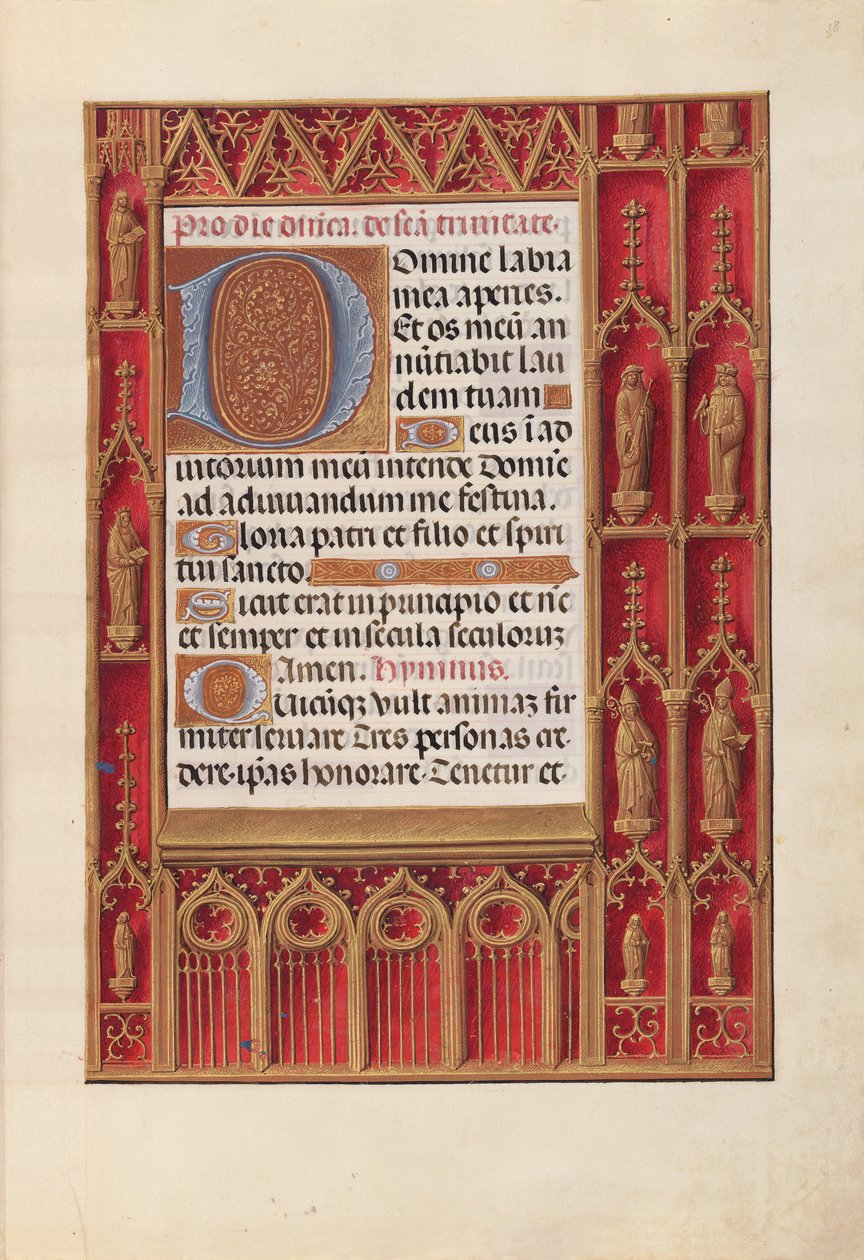 18
Pro die dn̄ica. de scā trinitate.
Domine labia
mea aperies.
Et os meū an
nūtiabit lau
dem tuam
Deus ī ad
iutorium meū intende Domīe
ad adiuuandum me festina.
Gloria patri et filio et spiri
tui sancto.
Sicut erat in principio et nūc
et semper et in secula seculorūz
Amen. Hymnus.
Quicūqz vult animaz fir
miter seruare Tres personas cre-
dere. ip̄as honorare. Tenetur et.